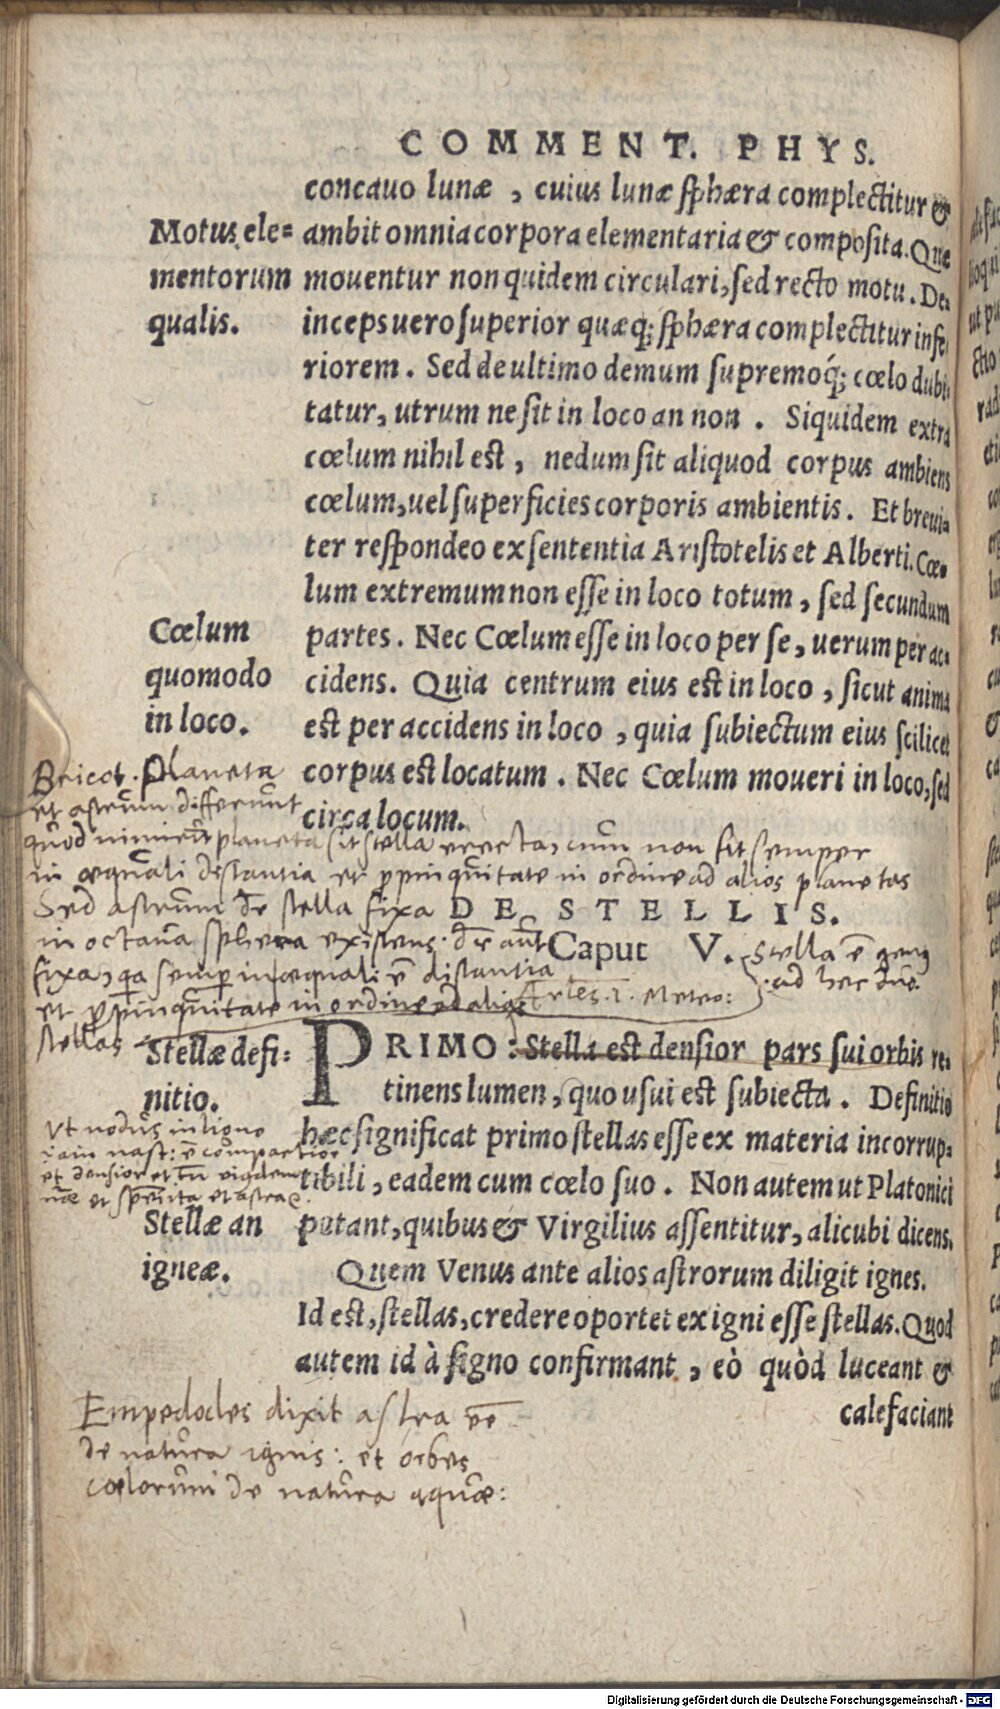 COMMENT. PHYS.
concauo lunæ, cuius lunæ sphæra complectitur &
Motus ele=
mentorum
qualis.
ambit omnia corpora elementaria & composita. Quæ
mouentur non quidem circulari, sed recto motu. De-
inceps uero superior quæq; sphæra complectitur infe
riorem. Sed de ultimo demum supremoq́; cœlo dubi
tatur, utrum ne sit in loco an non. Siquidem extra
cœlum nihil est, nedum sit aliquod corpus ambiens
cœlum, uel superficies corporis ambientis. Et breui=
ter respondeo ex sententia Aristotelis et Alberti. Cœ-
lum extremum non esse in loco totum, sed secundum
Cœlum
quomodo
in loco.
partes. Nec Cœlum esse in loco per se, uerum per ac-
cidens. Quia centrum eius est in loco, sicut anima
est per accidens in loco, quia subiectum eius scilicet
corpus est locatum. Nec Cœlum moueri in loco, sed
circa locum.
Bricot. Planeta
et astrum differunt
quod planeta sit stella erecta, cum non sit semper
in æquali distantia et ꝓpinquitate in ordine ad alios planetas
Sed astrum stella fixa
in octaua sphera existens
fixa, semꝑ in æquali distantia
et ꝓpinquitate in ordine ad alias
stellas
DE STELLIS.
Caput V.
Stella ē
ad hec
Meteo:
Stellæ defi=
nitio.
PRIMO: Stella est densior pars sui orbis re-
tinens lumen, quo usui est subiecta. Definitio
hæc significat primo stellas esse ex materia incorrup=
tibili, eadem cum cœlo suo. Non autem ut Platonici
Vt nodus in ligno
et densior
et astra
Stellæ an
igneæ.
putant, quibus & Virgilius assentitur, alicubi dicens.
Quem Venus ante alios astrorum diligit ignes.
Id est, stellas, credere oportet ex igni esse stellas. Quod
autem id à signo confirmant, eò quòd luceant &
calefaciant
Empedocles dixit astra eē
de natura ignis: et orbes
cœlorum de natura aquæ:
Digitalisierung gefördert durch die Deutsche Forschungsgemeinschaft - DFG